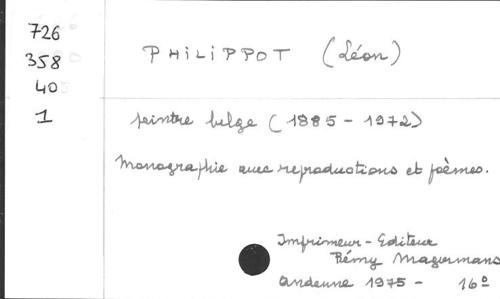 726
358
40
1
PHILIPPOT (Léon)
peintre belge (1885 - 1972)
Monographie avec reproductions et poèmes.
Imprimeur - Editeur
Rémy Magermans
Andenne 1975 - 16°